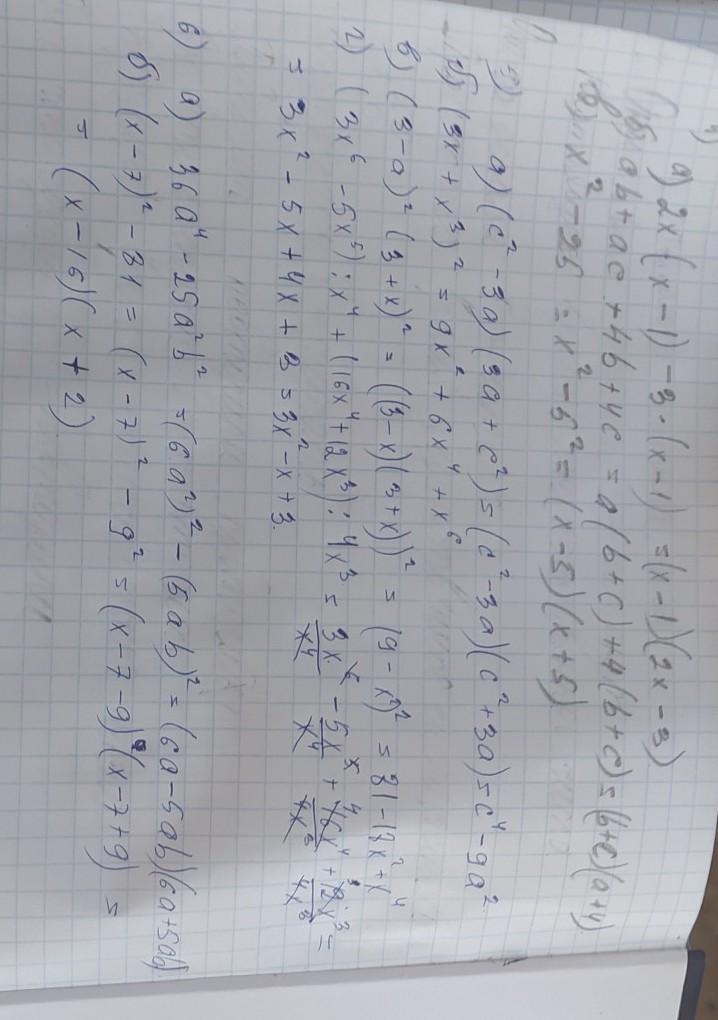 а) 2x (x - 1) - 3 · (x - 1) = (x - 1)(2x - 3)
б) ab + ac + 4b + 4c = a(b + c) + 4(b + c) = (b + c)(a + 4)
в) x² - 25 = x² - 5² = (x - 5)(x + 5)
5) а) (c² - 3a)(3a + c²) = (c² - 3a)(c² + 3a) = c⁴ - 9a²
б) (3x + x³)² = 9x² + 6x⁴ + x⁶
в) (3 - a)² (3 + x)² = ((3 - x)(3 + x))² = (9 - x²)² = 81 - 18x² + x⁴
г) (3x⁶ - 5x⁵) : x⁴ + (16x⁴ + 12x³) : 4x³ = 3x⁶/x⁴ - 5x⁵/x⁴ + 16x⁴/4x³ + 12x³/4x³ =
= 3x² - 5x + 4x + 3 = 3x² - x + 3.
6) а) 36a⁴ - 25a²b² = (6a²)² - (5ab)² = (6a - 5ab)(6a + 5ab)
б) (x - 7)² - 81 = (x - 7)² - 9² = (x - 7 - 9)(x - 7 + 9) =
= (x - 16)(x + 2)